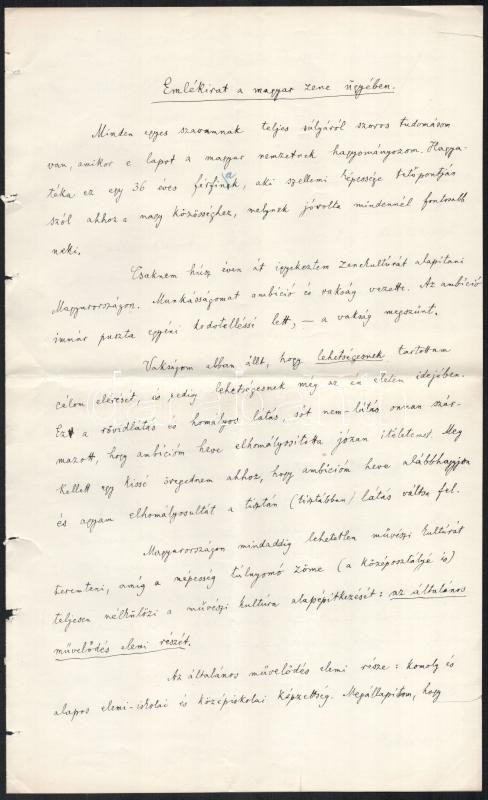 Emlékirat a magyar zene ügyében.
Minden egyes szavamnak teljes súlyáról szoros tudomásom
van, amikor e lapot a magyar nemzetnek hagyományozom. Hagya-
téka ez egy 36 éves férfinek, aki szellemi képessége tetőpontján
szól ahhoz a nagy közösséghez, melynek jóvolta mindennél fontosabb
neki.
Csaknem húsz éven át igyekeztem zenekultúrát alapítani
Magyarországon. Munkásságomat ambíció és vakság vezette. Az ambíció
immár puszta egyéni kedvteléssé lett, – a vakság megszűnt.
Vakságom abban állt, hogy lehetségesnek tartottam
célom elérését, és pedig lehetségesnek még az én életem idejében.
Ez a rövidlátás és homályos látás, sőt nem-látás onnan szár-
mazott, hogy ambícióm heve elhomályosította józan ítéletemet. Meg
kellett egy kissé öregednem ahhoz, hogy ambícióm heve alábbhagyjon
és agyam elhomályosultát a tisztán (tisztábban) látás váltsa fel.
Magyarországon mindaddig lehetetlen művészi kultúrát
teremteni, amíg a népesség túlnyomó zöme (a középosztályé is)
teljesen nélkülözi a művészi kultúra alapépítkezését: az általános
művelődés elemi részét.
Az általános művelődés elemi része: komoly és
alapos elemi-iskolai és középiskolai képzettség. Megállapítom, hogy